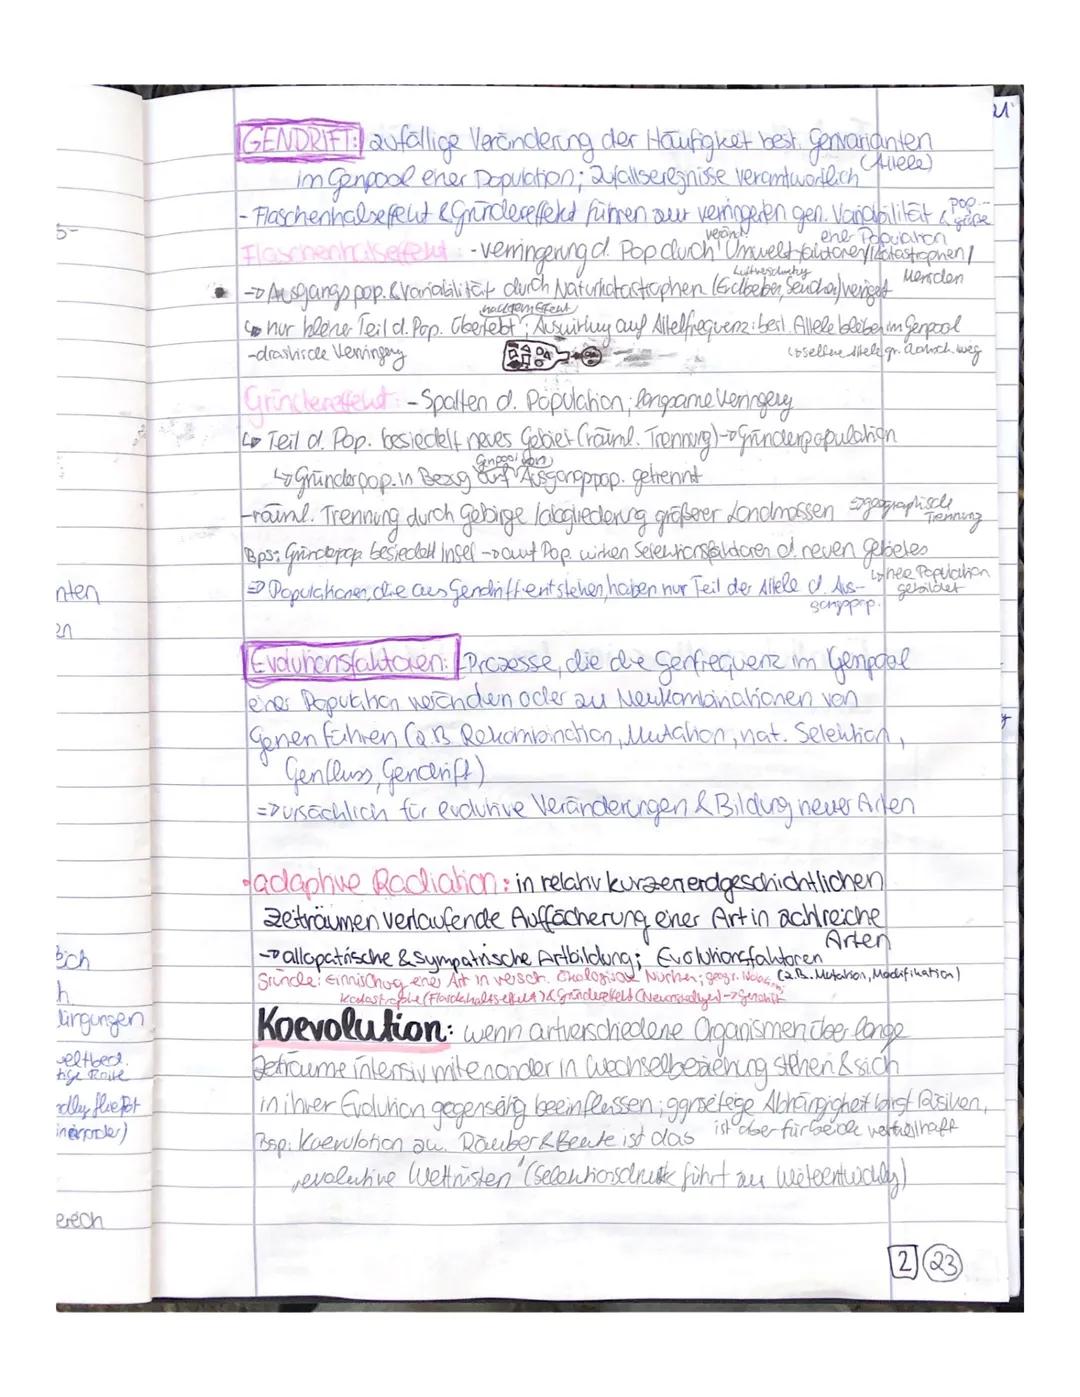 21
GENDRIFT: zufällige Veränderung der Häufigkeit best. Genvarianten
(Allele)
im Genpool einer Population; Zufallsereignisse verantwortlich
- Flaschenhalseffekt & Gründereffekt führen zur verringerten gen. Variabilität & Pop.-
größe
Flaschenhalseffekt: - verringerung d. Pop durch veränd. Umweltfaktoren/Katastrophen/
einer Population
Menschen
-> Ausgangspop. & Variabilität durch Naturkatastrophen (Erdbeben, Seuchen) verringert
Luftverschmutzung
↳ nur kleiner Teil d. Pop. überlebt; Auswirkung auf Allelfrequenz: best. Allele bleiben im Genpool
- drastische Verringerung
↳ seltene Allele gr. weg
Gründereffekt: - Spalten d. Population; langsame Verringerung
↳ Teil d. Pop. besiedelt neues Gebiet (räuml. Trennung) -> Gründerpopulation
↳ Gründerpop. in Bezug auf Genpool von Ausgangspop. getrennt
- räuml. Trennung durch Gebirge / abgliederung größerer Landmassen => geographische
Trennung
Bps: Gründerpop besiedelt Insel -> auf Pop. wirken Selektionsfaktoren d. neuen Gebietes
↳ neue Population
gebildet
=> Populationen, die aus Gendrift entstehen, haben nur Teil der Allele d. Aus-
gangspop.
Evolutionsfaktoren: - Prozesse, die die Genfrequenz im Genpool
einer Population verändern oder zu Neukombinationen von
Genen führen (z.B. Rekombination, Mutation, nat. Selektion,
Genfluss, Gendrift)
=> ursächlich für evolutive Veränderungen & Bildung neuer Arten
• adaptive Radiation: in relativ kurzen erdgeschichtlichen
Zeiträumen verlaufende Auffächerung einer Art in zahlreiche
Arten
-> allopatrische & sympatrische Artbildung; Evolutionsfaktoren
(z.B. Mutation, Modifikation)
Gründe: Einnischung einer Art in versch. ökologische Nischen; geogr.
Katastrophe (Flaschenhalseffekt) & Gründereffekt -> Gendrift
Koevolution: wenn artverschiedene Organismen über lange
Zeiträume intensiv miteinander in Wechselbeziehung stehen & sich
in ihrer Evolution gegenseitig beeinflussen; ggnseitige Abhängigkeit birgt Risiken,
ist aber für beide vorteilhaft
Bsp: Koevolution zw. Räuber & Beute ist das
„evolutive Wettrüsten" (Selektionsdruck führt zu Weiterentwicklung)
2 23
nten
en
h.